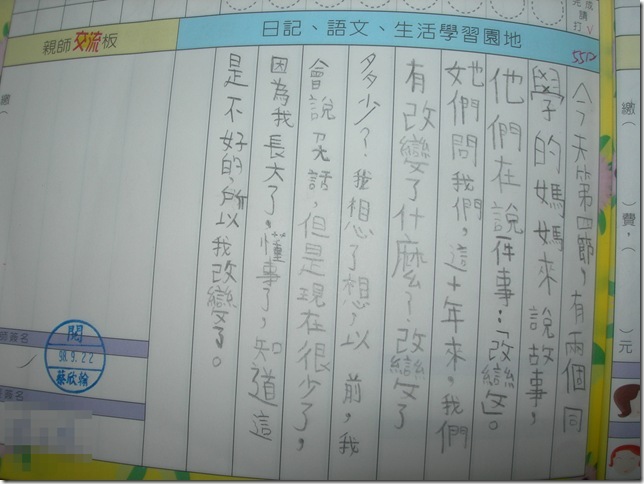 完成請打V
日記、語文、生活學習園地
親師交流板
今天第四節,有兩個同
學的媽媽來說故事,
他們在說一件事:改變。
她們問我們,這十年來,我們
有改變了什麼?改變了
多少?我想了想,以前,我
會說 話,但是現在很少了,
因為我長大了,懂事了,知道這
是不好的,所以我改變了。
閱
98.9.22
蔡欣翰
師簽名
簽名
繳( )費,( )元